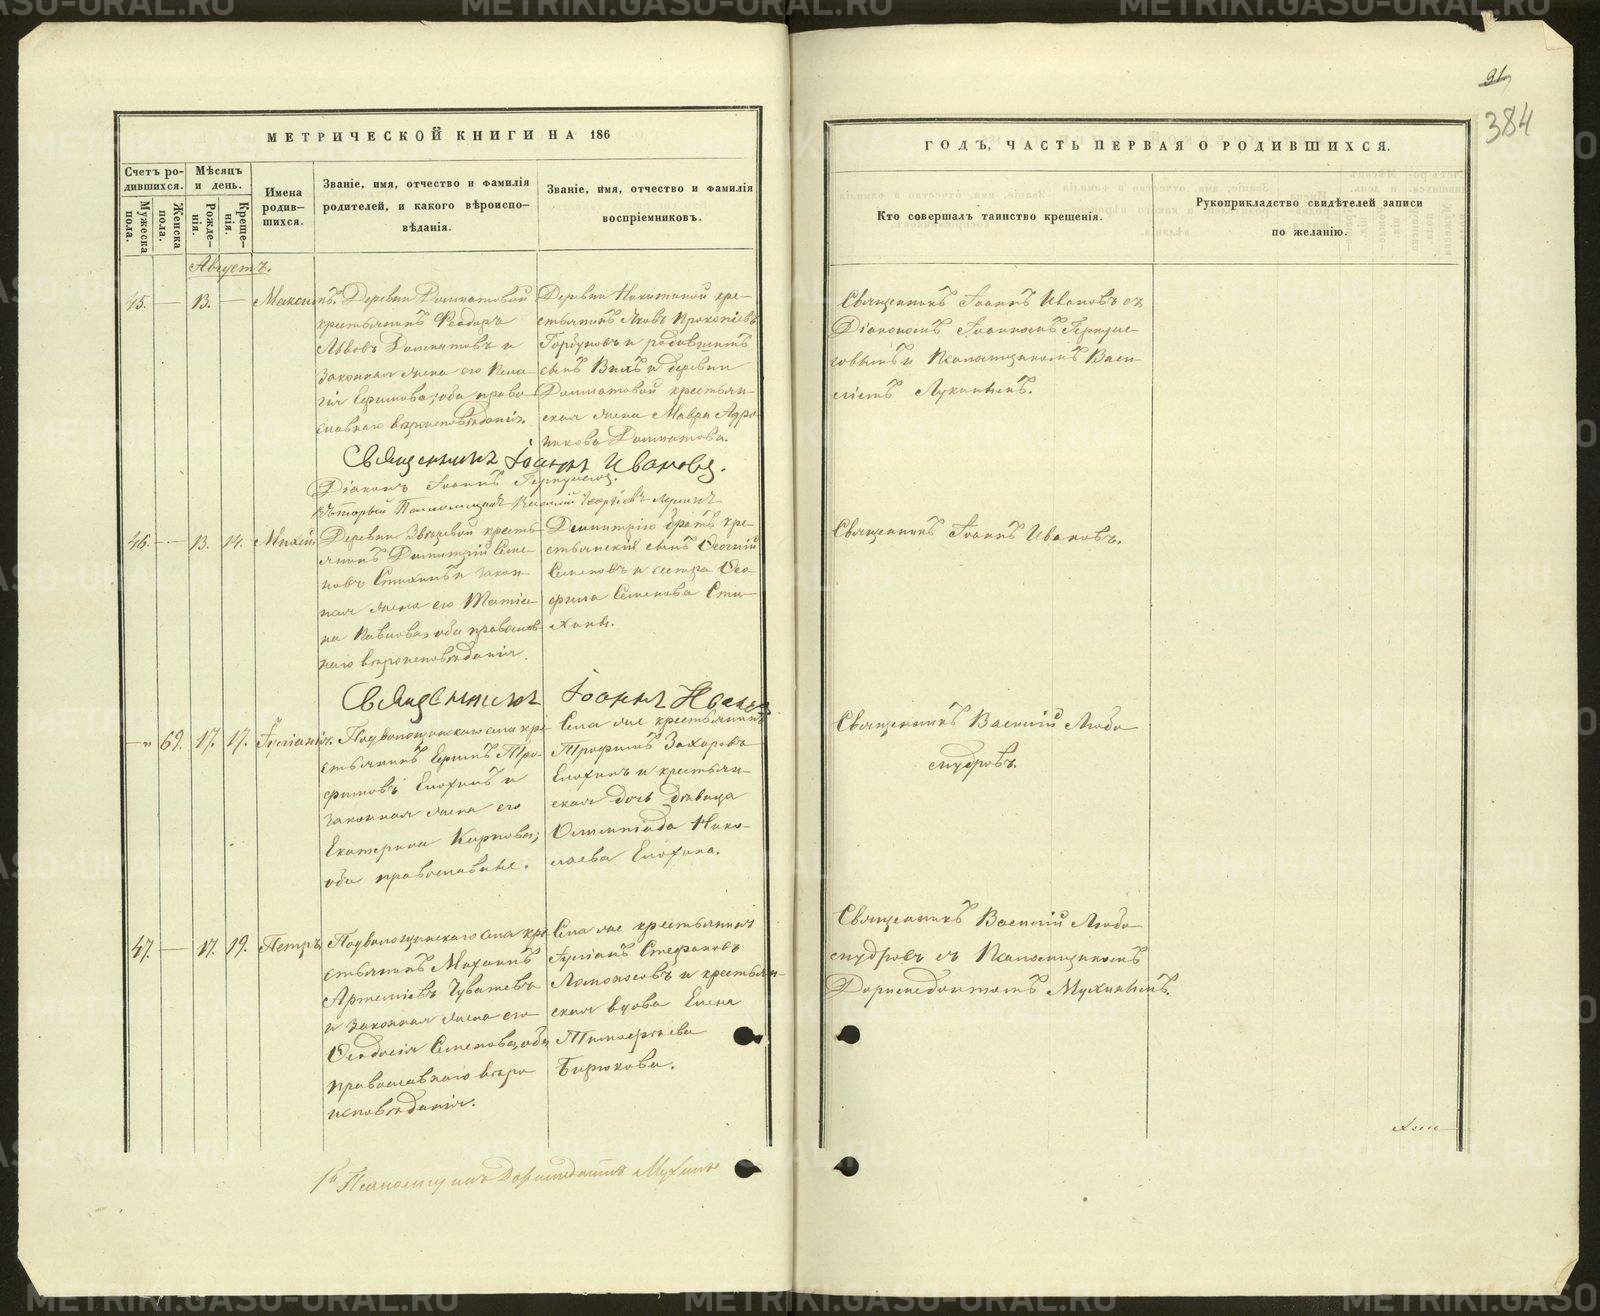 91
384
МЕТРИЧЕСКОЙ КНИГИ НА 186
ГОДЪ, ЧАСТЬ ПЕРВАЯ О РОДИВШИХСЯ.
Счетъ ро-
дившихся.
Мужеска
пола.
Женска
пола.
Мѣсяцъ
и день.
Рожде-
нія.
Креще-
нія.
Имена
родив-
шихся.
Званіе, имя, отчество и фамилія
родителей, и какого вѣроиспо-
вѣданія.
Званіе, имя, отчество и фамилія
воспріемниковъ.
Кто совершалъ таинство крещенія.
Рукоприкладство свидѣтелей записи
по желанію.
Августъ.
45. — 13. — Максимъ.
Деревни Долматовой
крестьянинъ Ѳеодоръ
Львовъ Долматовъ и
законная жена его Пела-
гія Ефимова; оба право-
славнаго вѣроисповѣданія.
Деревни Никитиной кре-
стьянинъ Яковъ Прокопіевъ
Горбуновъ и родившимъ
сынъ и деревни
Долматовой крестьян-
ская жена Мавра
Долматова.
Священникъ Іоаннъ Ивановъ съ
Діакономъ Іоанномъ
и Псаломщикомъ Васи-
ліемъ Лукинымъ.
Священникъ Іоаннъ Ивановъ.
Діаконъ Іоаннъ
Псаломщикъ Василій
46. — 13. 14. Михей.
Деревни Звѣревой кресть-
янинъ Димитрій Семе-
новъ Стихинъ и закон-
ная жена его Татья-
на Павлова, оба православ-
наго вѣроисповѣданія.
Димитрію братъ кре-
стьянскій сынъ
Семеновъ и сестра Ѳео-
фила Семенова Сти-
хины.
Священникъ Іоаннъ Ивановъ.
Священникъ Іоаннъ Ивановъ
— 69. 17. 17. Іуліанія.
Подволошинскаго села кре-
стьянинъ Ефимъ Тро-
фимовъ Елохинъ и
законная жена его
Екатерина Карпова;
оба православные.
Села же крестьянинъ
Трофимъ Захаровъ
Елохинъ и крестьян-
ская дочь дѣвица
Олимпіада Нико-
лаева Елохина.
Священникъ Василій Любо-
мудровъ.
47. — 17. 19. Петръ
Подволошинскаго села кре-
стьянинъ Михаилъ
Артеміевъ Чуватевъ
и законная жена его
Ѳеодосія Семенова, оба
православнаго вѣро-
исповѣданія.
Села же крестьянинъ
Іуліанъ Стефановъ
Ломоносовъ и крестьян-
ская вдова Елена
Тимофѣева
Бирюкова.
Священникъ Василій Любо-
мудровъ съ Псаломщикомъ
Дормедонтомъ Мухинымъ.
Псаломщикъ Дормедонтъ Мухинъ